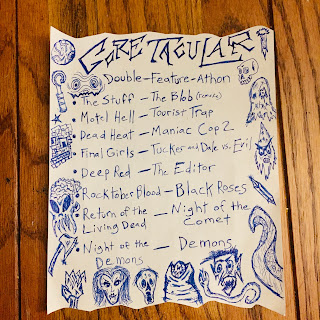 GORETACULAR
Double-Feature-Athon
• The Stuff – The Blob (remake)
• Motel Hell – Tourist Trap
• Dead Heat – Maniac Cop 2
• Final Girls – Tucker and Dale vs. Evil
• Deep Red – The Editor
• Rocktober Blood – Black Roses
• Return of the Living Dead – Night of the Comet
• Night of the Demons – Demons